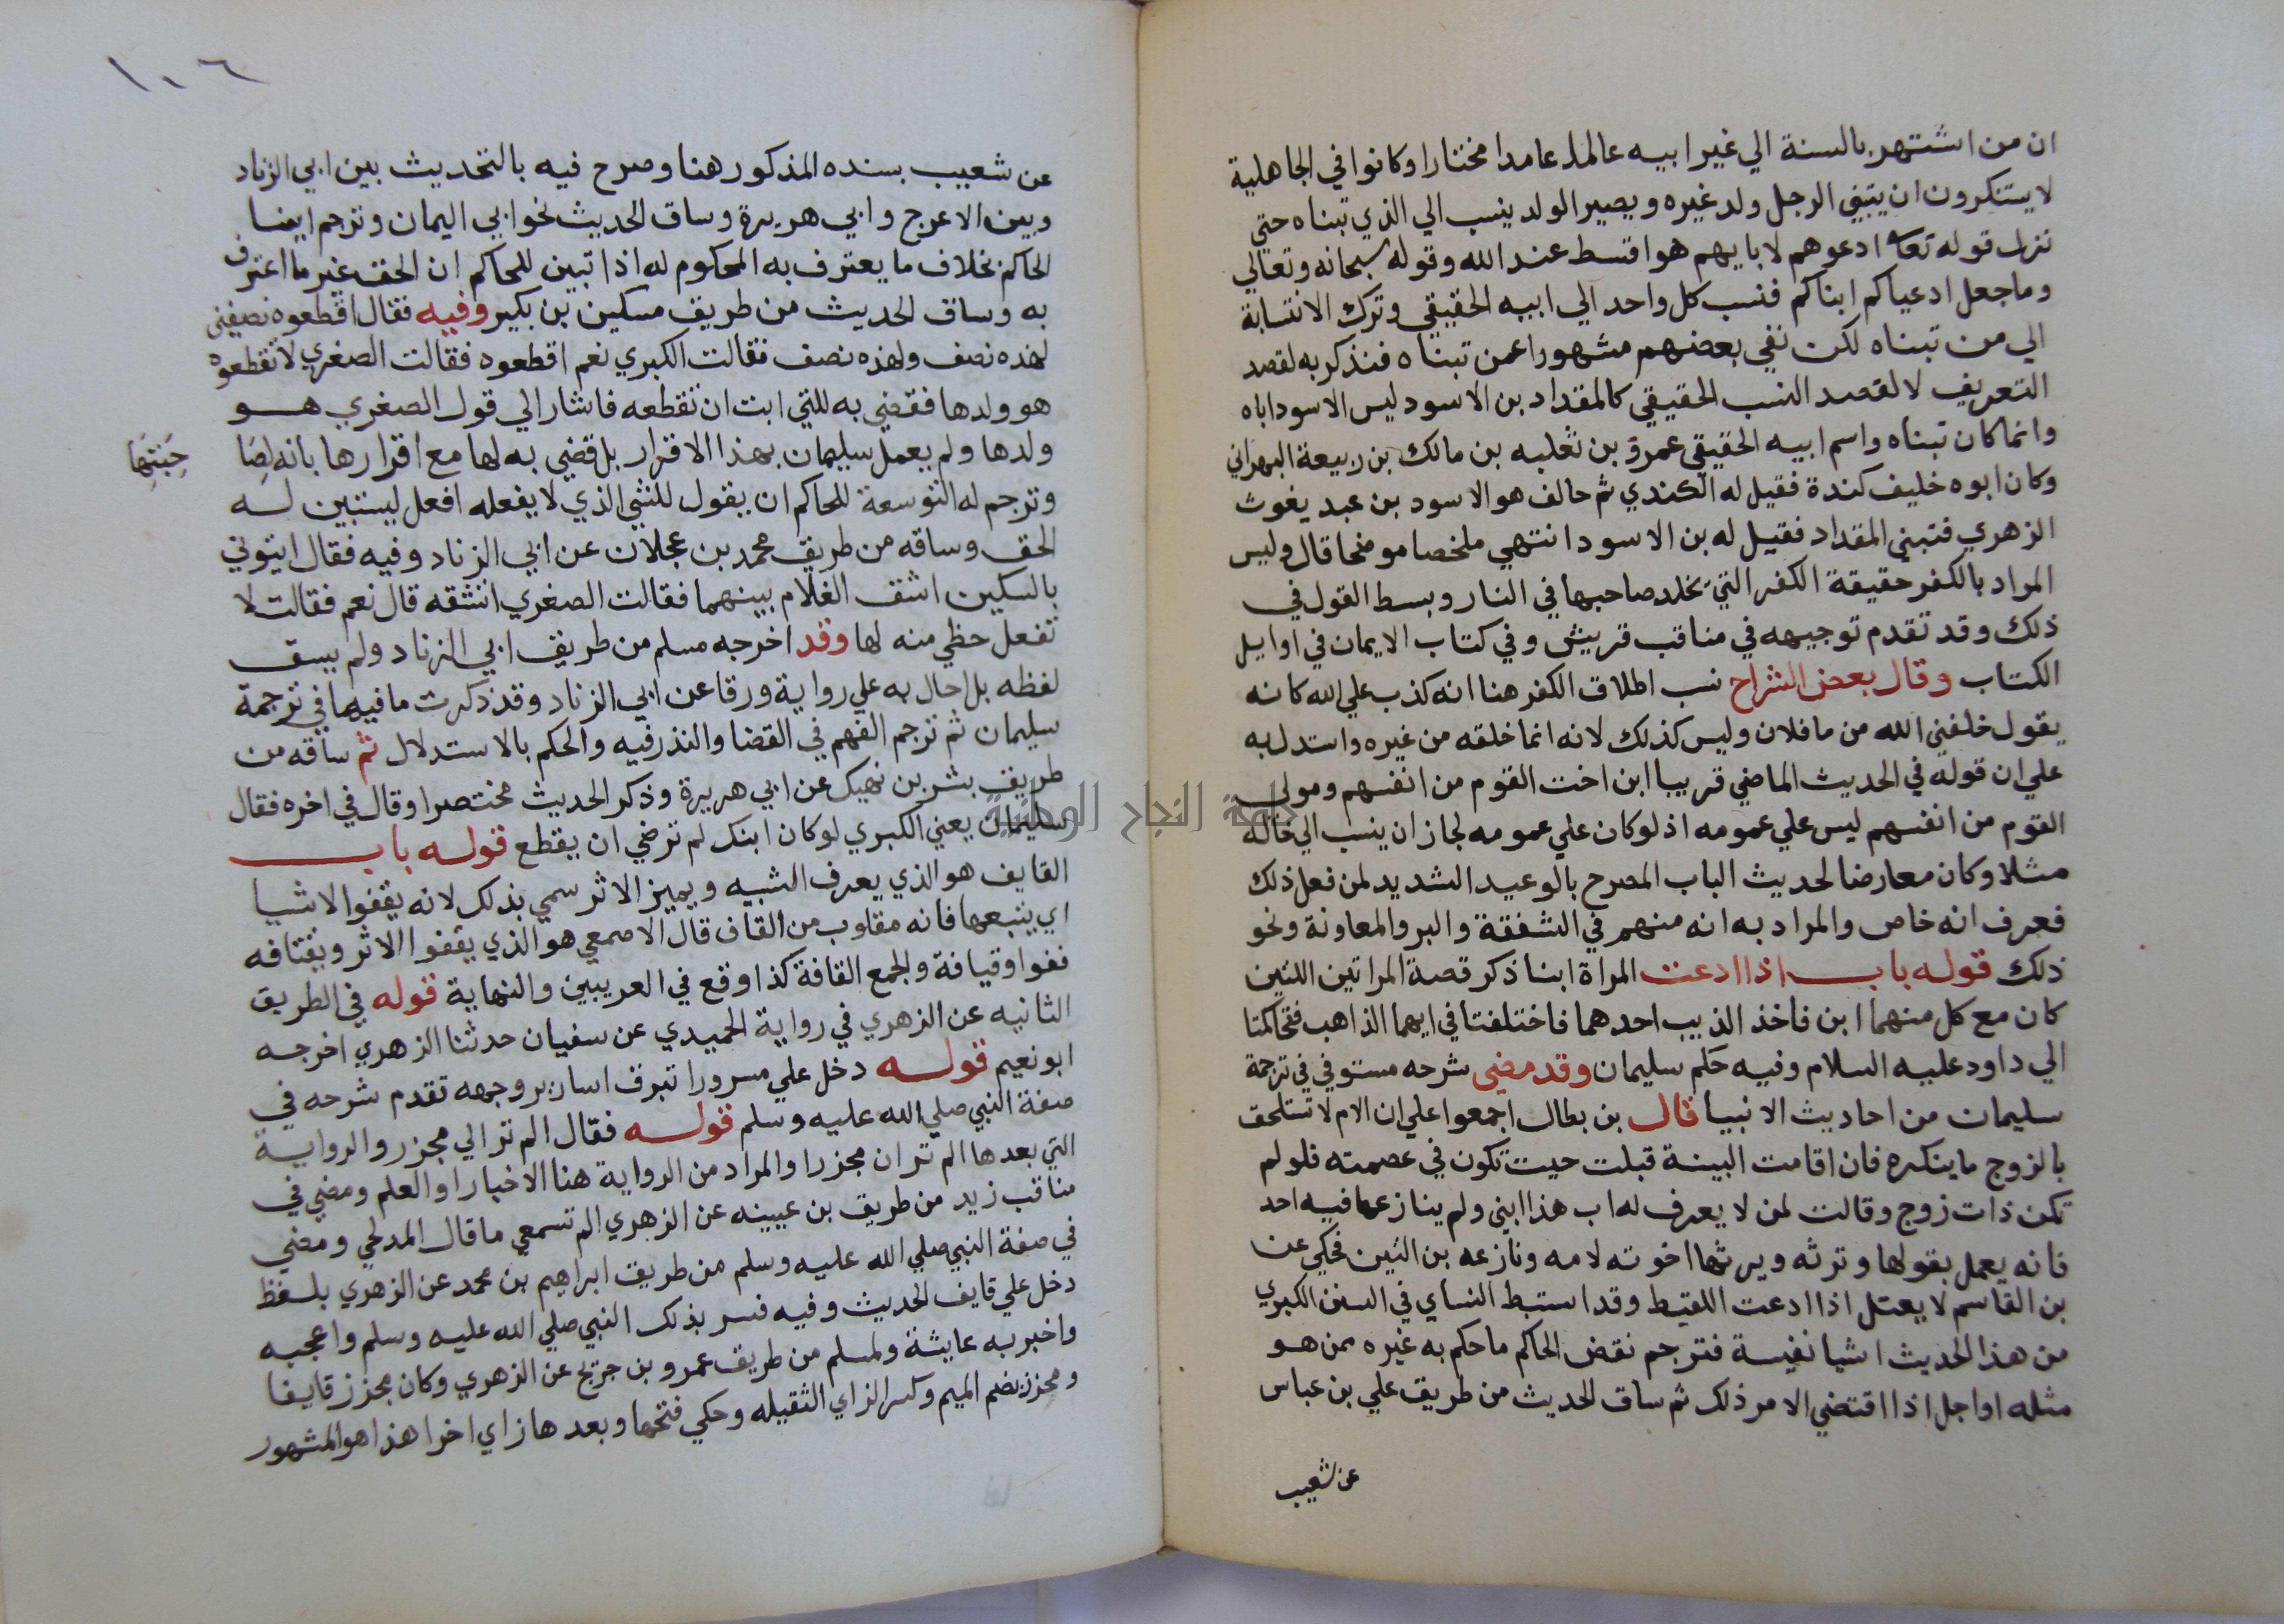 ان من اشتهر بالسنة الي غير ابيه عالما عامدا مختارا وكانوا في الجاهلية
لا يستنكرون ان يتبني الرجل ولد غيره ويصير الولد ينسب الي الذي تبناه حتي
نزل قوله تعا ادعوهم لابايهم هو اقسط عند الله وقوله سبحانه وتعالي
وما جعل ادعياكم ابناكم فنسب كل واحد الي ابيه الحقيقي وترك الانتسابة
الي من تبناه لكن نفي بعضهم مشهورا عمن تبناه فنذكر به لقصد
التعريف لا لقصد النسب الحقيقي كالمقداد بن الاسود ليس الاسود اباه
وانما كان تبناه واسم ابيه الحقيقي عمرو بن ثعلبه بن مالك بن ربيعة البهراني
وكان ابوه خليف كندة فقيل له الكندي ثم حالف هو الاسود بن عبد يغوث
الزهري فتبني المقداد فقيل له بن الاسود انتهي ملخصا موضحا قال وليس
المراد بالكفر حقيقة الكفر التي تخلد صاحبها في النار وبسط القول في
ذلك وقد تقدم توجيهه في مناقب قريش وفي كتاب الايمان في اوايل
الكتاب وقال بعض الشراح نسب اطلاق الكفر هنا انه كذب علي الله كانه
يقول خلفني الله من ما فلان وليس كذلك لانه انما خلقه من غيره واستدل به
علي ان قوله في الحديث الماضي قريبا ابن اخت القوم من انفسهم ومولي
القوم من انفسهم ليس علي عمومه اذ لو كان علي عمومه لجاز ان ينسب الي خاله
مثلا وكان معارضا لحديث الباب المصرح بالوعيد الشديد لمن فعل ذلك
فعرف انه خاص والمراد به انه منهم في الشفقة والبر والمعاونة ونحو
ذلك قوله باب اذا ادعت المراة ابنا ذكر قصة المراتين اللتين
كان مع كل منهما ابن فاخذ الذيب احدهما فاختلفتا في ايهما الذاهب فتحاكمتا
الي داود عليه السلام وفيه حكم سليمان وقد مضي شرحه مستوفي في ترجمة
سليمان من احاديث الانبيا قال بن بطال اجمعوا علي ان الام لا تستلحق
بالزوج ما ينكره فان اقامت البينة قبلت حيث تكون في عصمته فلو لم
تكن ذات زوج وقالت لمن لا يعرف له اب هذا ابني ولم ينازعها فيه احد
فانه يعمل بقولها وترثه ويرثها اخوته لامه ونازعه بن التين فحكي عن
بن القاسم لا يعتل اذا ادعت اللقيط وقد استبط النساي في السنن الكبري
من هذا الحديث اشيا نفيسة فترجم نقض الحاكم ما حكم به غيره ممن هو
مثله او اجل اذا اقتضي الامر ذلك ثم ساق الحديث من طريق علي بن عباس
عن شعيب
١٠٦
عن شعيب بسنده المذكور هنا وصرح فيه بالتحديث بين ابي الزناد
وبين الاعرج وابي هريرة وساق الحديث نحو ابي اليمان وترجم ايضا
الحاكم بخلاف ما يعترف به المحكوم له اذا تبين للحاكم ان الحق غير ما اعترف
به وساق الحديث من طريق مسكين بن بكير وفيه فقال اقطعوه نصفين
لهذه نصف ولهذه نصف فقالت الكبري نعم اقطعوه فقالت الصغري لا تقطعوه
هو ولدها فقضي به للتي ابت ان تقطعه فاشار الي قول الصغري هو
ولدها ولم يعمل سليمان بهذا الاقرار بل قضي به لها مع اقرارها بانه لصا
حبتها
وترجم له التوسعة للحاكم ان يقول للشي الذي لا يفعله افعل ليستبين له
الحق وساقه من طريق محمد بن عجلان عن ابي الزناد وفيه فقال ايتوني
بالسكين اشق الغلام بينهما فقالت الصغري اتشقه قال نعم فقالت لا
تفعل حظي منه لها وقد اخرجه مسلم من طريق ابي الزناد ولم يسق
لفظه بل احال به علي رواية ورقا عن ابي الزناد وقد ذكرت ما فيها في ترجمة
سليمان ثم ترجم الفهم في القضا والنذر فيه والحكم بالاستدلال ثم ساقه من
طريق بشر بن نهيك عن ابي هريرة وذكر الحديث مختصرا وقال في اخره فقال
سليمان يعني الكبري لو كان ابنك لم ترضي ان يقطع قوله باب
القايف هو الذي يعرف الشبه ويميز الاثر سمي بذلك لانه يقفوا الاشيا
اي يتبعها فانه مقلوب من القاف قال الاصمعي هو الذي يقفوا الاثر ويقتافه
قفوا وقيافة والجمع القافة كذا وقع في الغريبين والنهاية قوله في الطريق
الثانيه عن الزهري في رواية الحميدي عن سفيان حدثنا الزهري اخرجه
ابو نعيم قوله دخل علي مسرورا تبرق اسارير وجهه تقدم شرحه في
صفة النبي صلي الله عليه وسلم قوله فقال الم تر الي مجزر والرواية
التي بعدها الم تر ان مجزرا والمراد من الرواية هنا الاخبار او العلم ومضي في
مناقب زيد من طريق بن عيينه عن الزهري الم تسمعي ما قال المدلجي ومضي
في صفة النبي صلي الله عليه وسلم من طريق ابراهيم بن محمد عن الزهري بلفظ
دخل علي قايف الحديث وفيه فسر بذلك النبي صلي الله عليه وسلم واعجبه
واخبر به عايشة ولمسلم من طريق عمرو بن جريج عن الزهري وكان مجزز قايفا
ومجزز بضم الميم وكسر الزاي الثقيله وحكي فتحها وبعدها زاي اخرا هذا هو المشهور
جامعة النجاح الوطنية